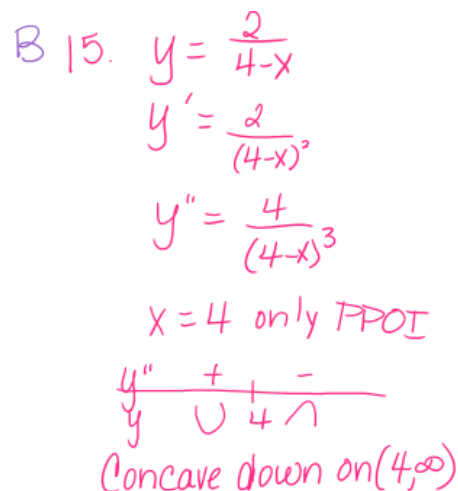 B 15. y = 2/(4-x)
y' = 2/(4-x)²
y" = 4/(4-x)³
x = 4 only PPOI
y" + -
y ∪ 4 ∩
Concave down on (4,∞)